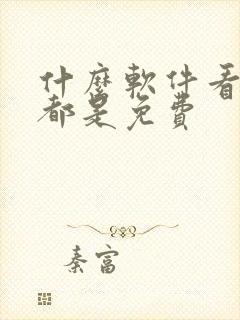 什麼軟件看
都是免費
秦富